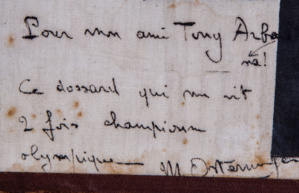 Pour mon ami Tony Arba
na!
Ce dossard qui me vit
2 fois championne
olympique — M. Ostermeyer